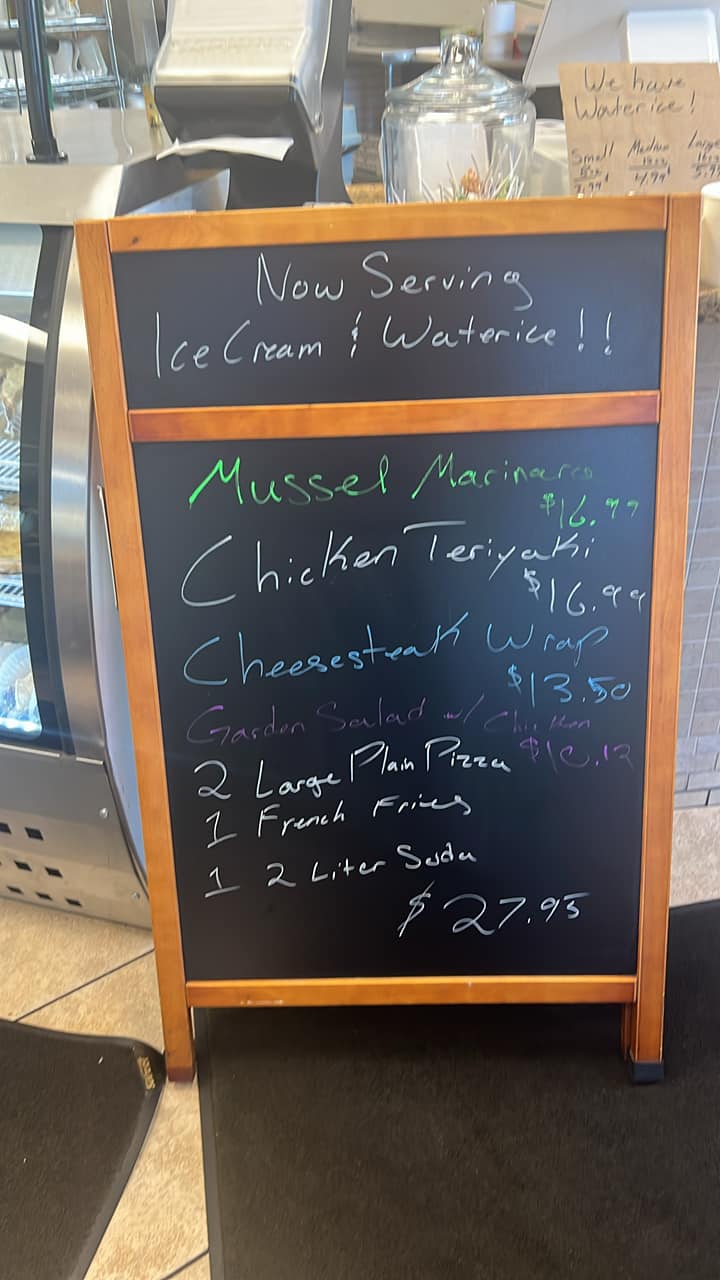 We have
Waterice!
Small Medium Large
Now Serving
Ice Cream & Waterice!!
Mussel Marinara
$16.99
Chicken Teriyaki
$16.99
Cheesesteak Wrap
$13.50
Garden Salad w/ Chicken
2 Large Plain Pizza
1 French Fries
1 2 Liter Soda
$27.95